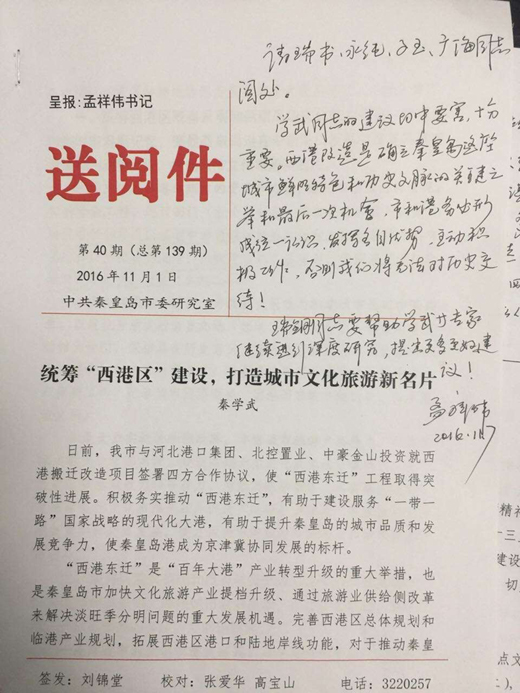 请瑞书、永纯、子玉、广海同志
阅处。
学武同志的建议切中要害,十分
重要。西港改造是确立秦皇岛这座
城市鲜明特色和历史文脉的关键之
举和最后一次机会,市和港务由形
成统一认识,发挥各自优势,主动积
极工作,否则我们将无法对历史交
待!
瑞钢同志要帮助学武廿专家
继续进行深度研究,提出更多更好建
议!
孟祥伟
2016.11.7
呈报:孟祥伟书记
送阅件
第 40 期(总第 139 期)
2016 年 11 月 1 日
中共秦皇岛市委研究室
统筹“西港区”建设,打造城市文化旅游新名片
秦学武
日前,我市与河北港口集团、北控置业、中豪金山投资就西
港搬迁改造项目签署四方合作协议,使“西港东迁”工程取得突
破性进展。积极务实推动“西港东迁”,有助于建设服务“一带一
路”国家战略的现代化大港,有助于提升秦皇岛的城市品质和发
展竞争力,使秦皇岛港成为京津冀协同发展的标杆。
“西港东迁”是“百年大港”产业转型升级的重大举措,也
是秦皇岛市加快文化旅游产业提档升级、通过旅游业供给侧改革
来解决淡旺季分明问题的重大发展机遇。完善西港区总体规划和
临港产业规划,拓展西港区港口和陆地岸线功能,对于推动秦皇
签发:刘锦堂 校对:张爱华 高宝山 电话:3220257
精神
十三
建设
切
点文